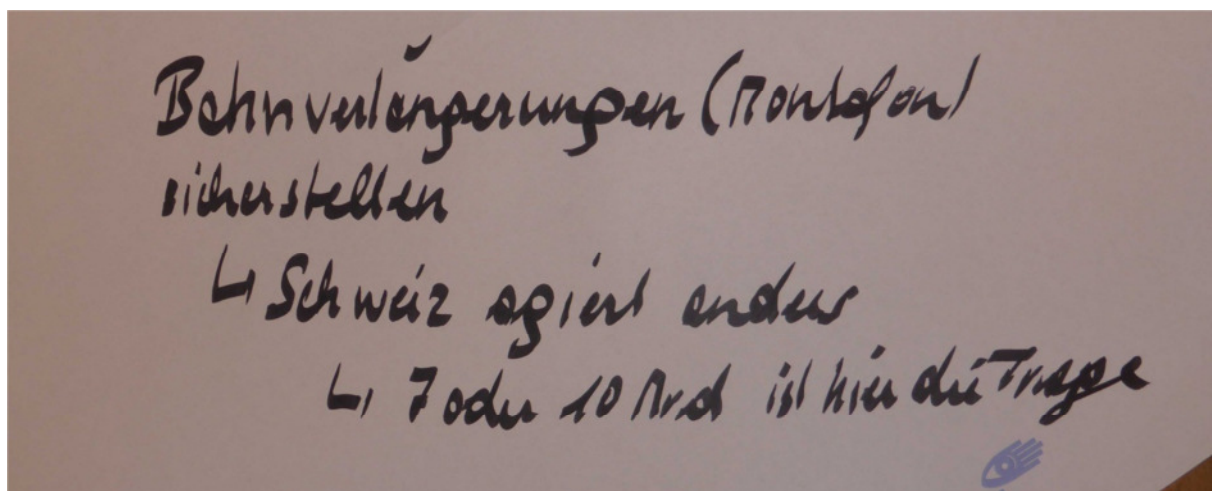 Bahnverlängerungen (Montafon)
sicherstellen
↳ Schweiz agiert anders
↳ 7 oder 10 Mrd ist hier die Frage